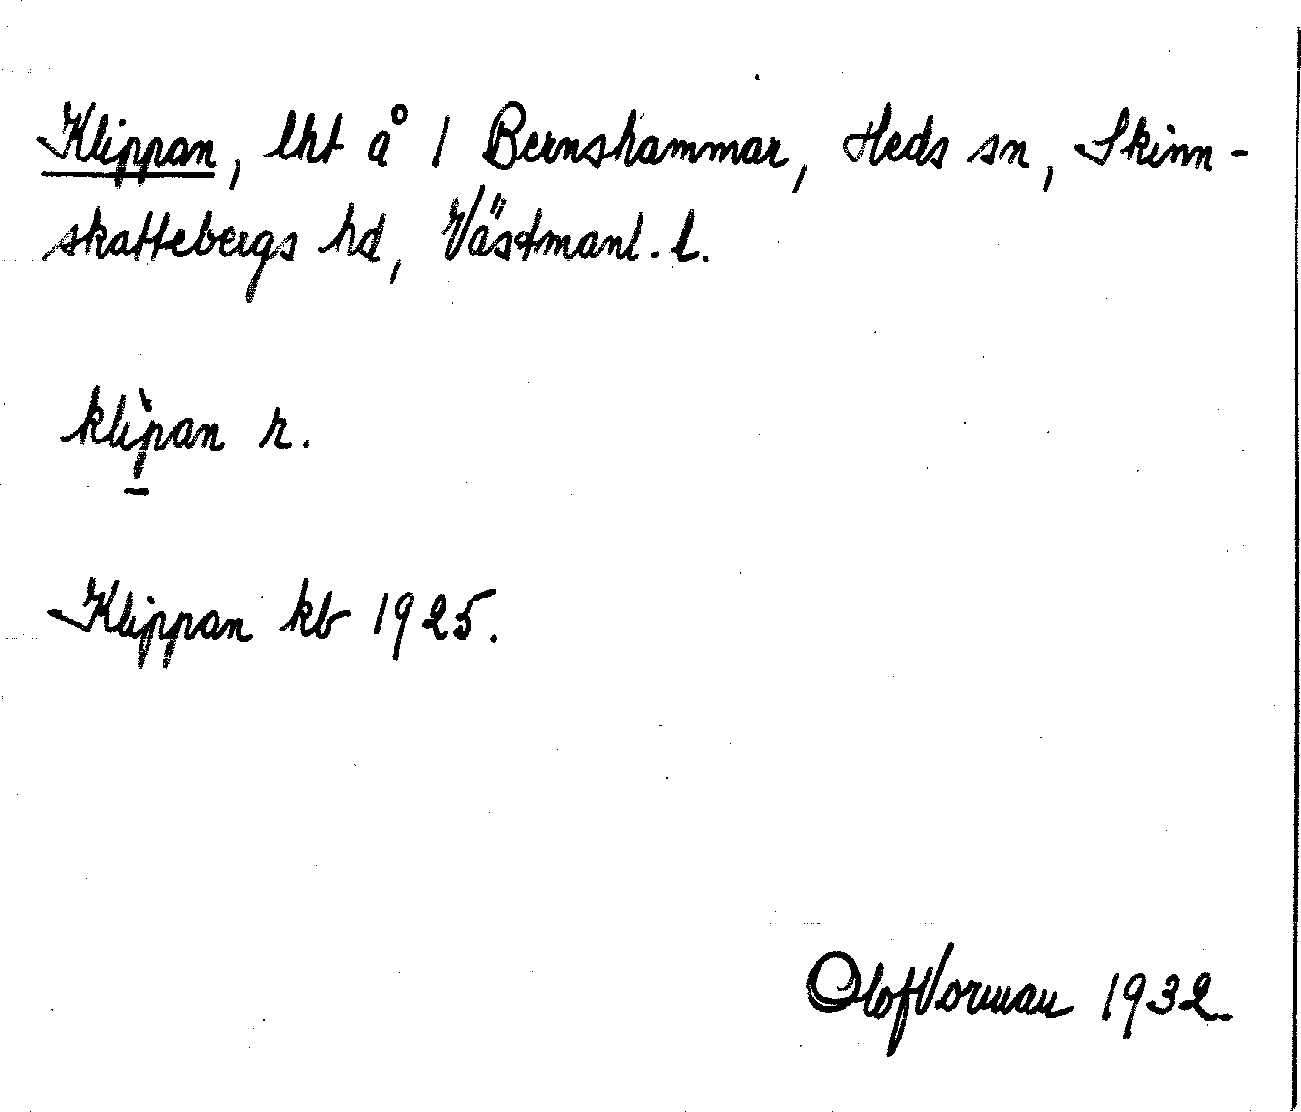 Klippan, lht å 1 Bernshammar, Heds sn, Skinn-
skattebergs hd, Västmanl. l.
klìp̱an r.
Klippan kb 1925.
Olof Vorman 1932.